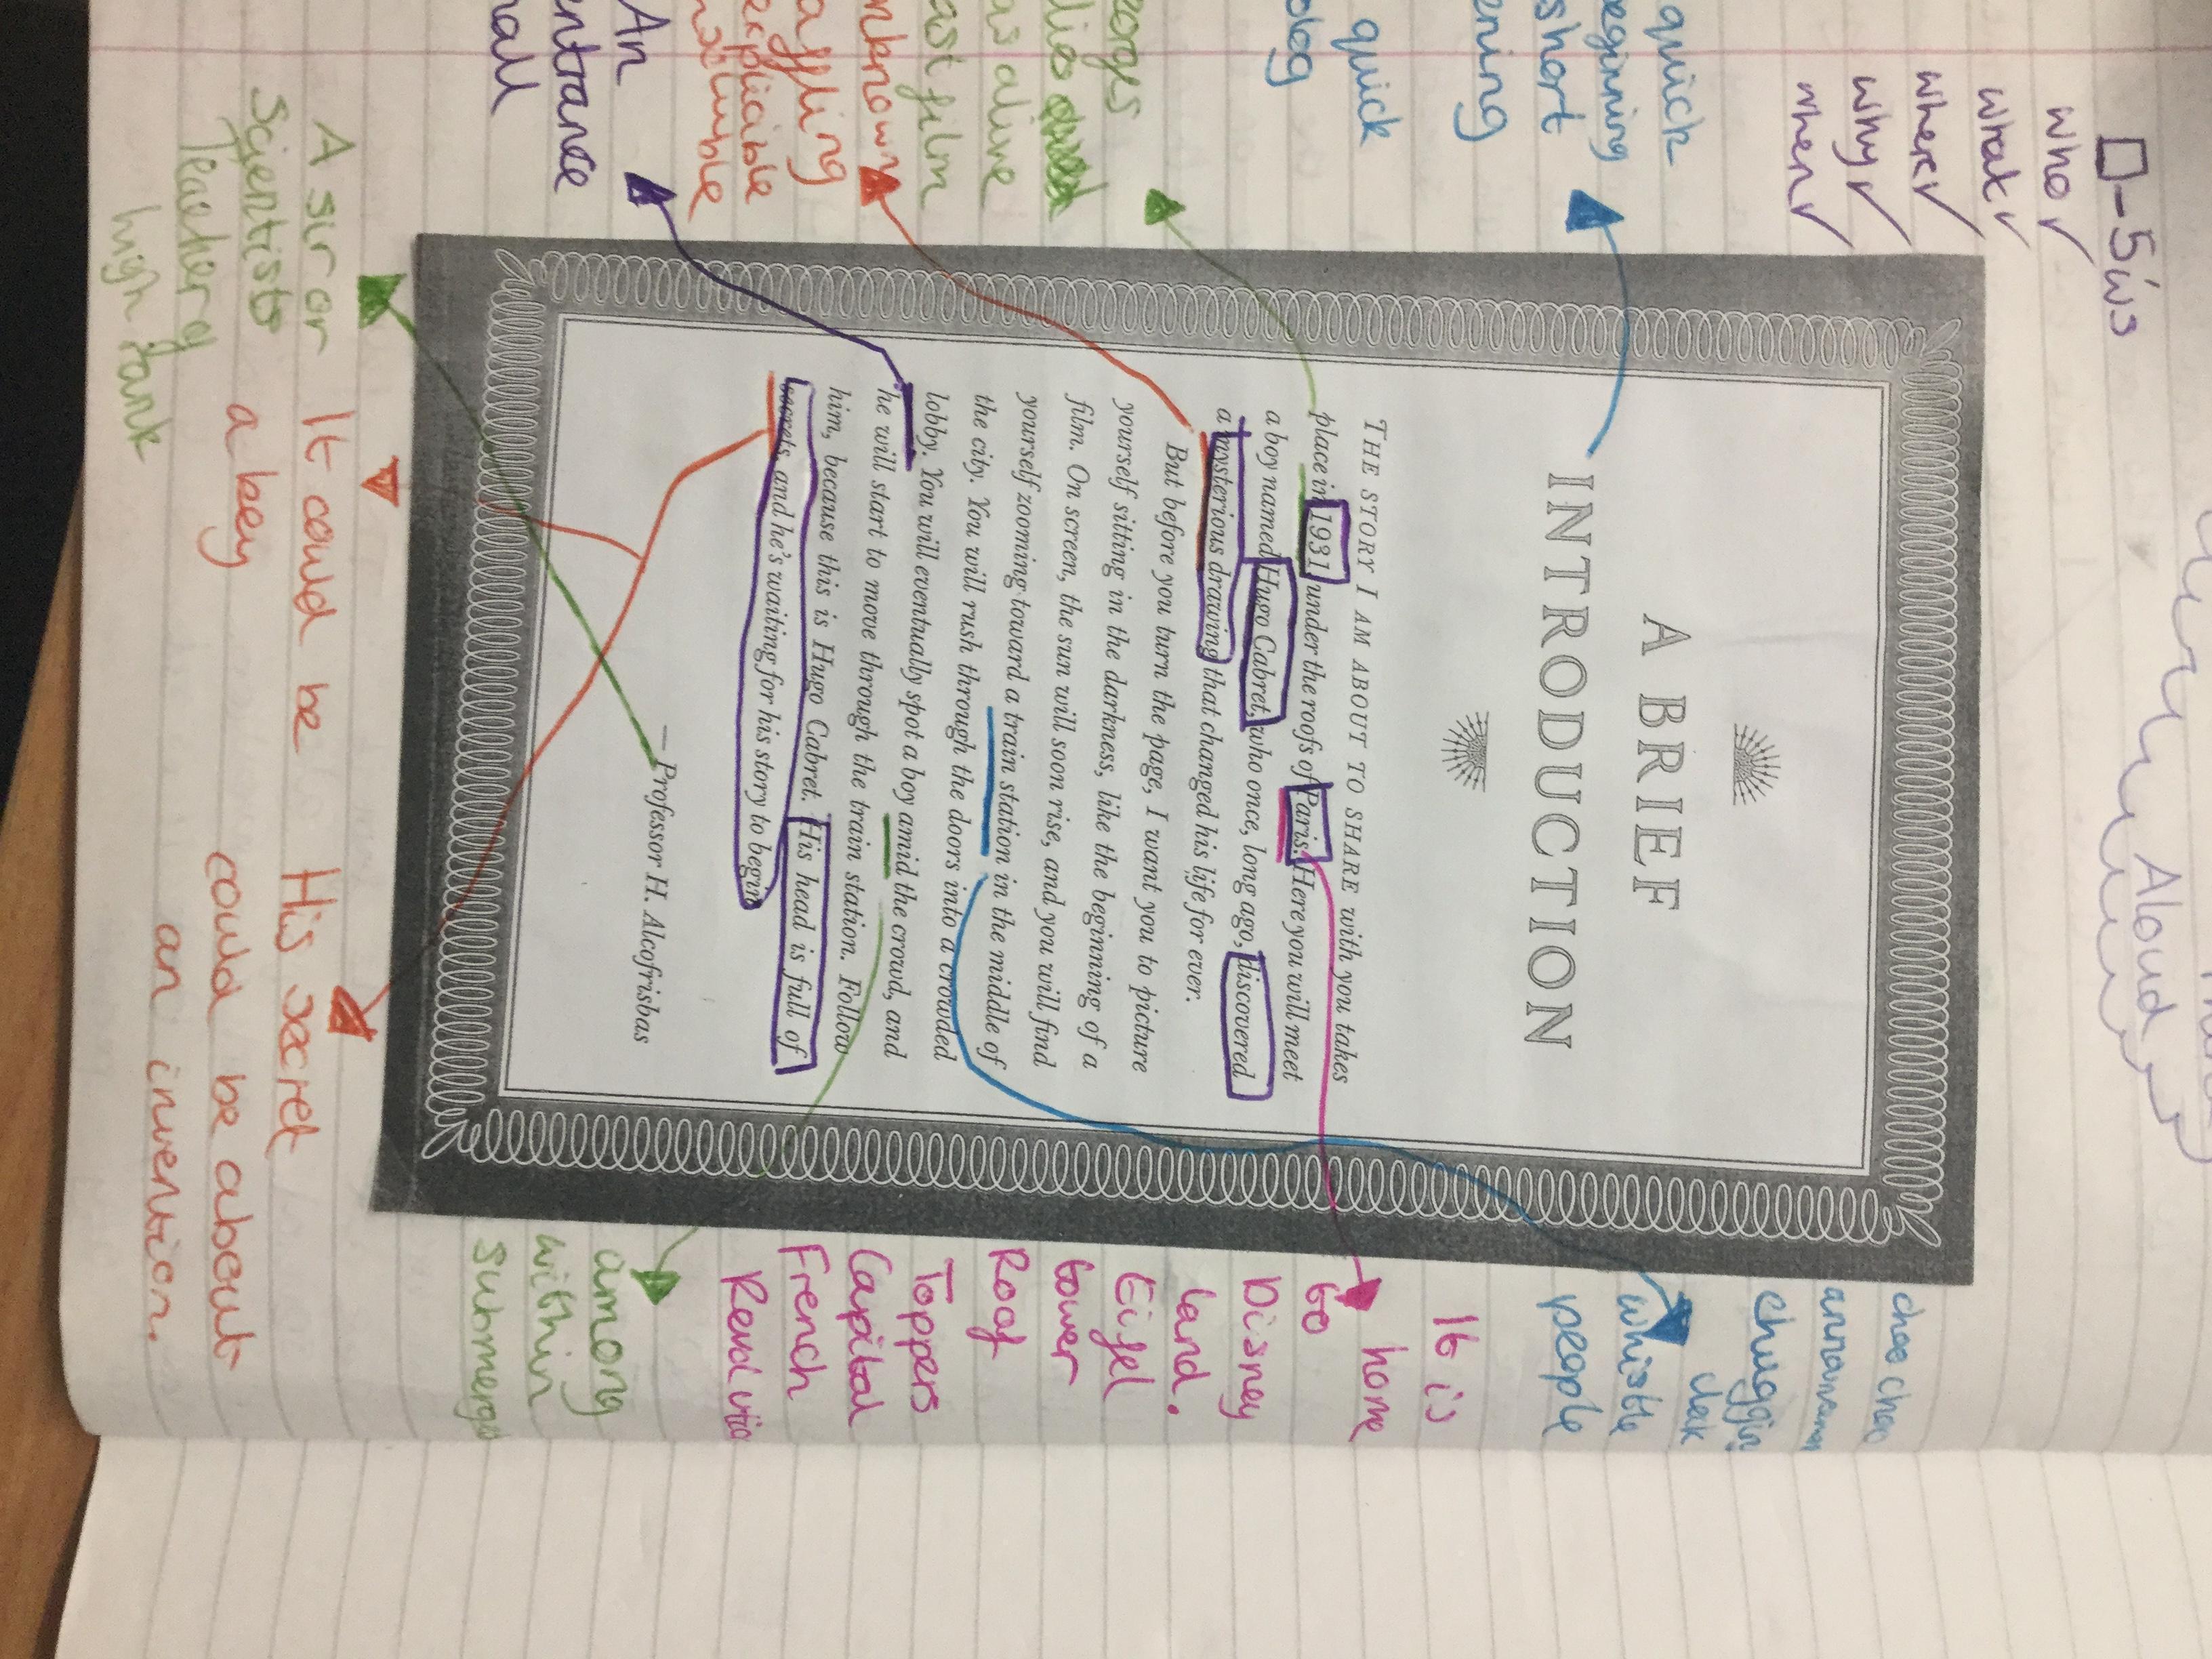 Aloud
□-5w's
who ✓
what ✓
where ✓
why ✓
when ✓
quick
beginning
short
quick
A BRIEF
INTRODUCTION
THE STORY I AM ABOUT TO SHARE with you takes
place in 1931 under the roofs of Paris. Here you will meet
a boy named Hugo Cabret, who once, long ago, discovered
a mysterious drawing that changed his life for ever.
But before you turn the page, I want you to picture
yourself sitting in the darkness, like the beginning of a
film. On screen, the sun will soon rise, and you will find
yourself zooming toward a train station in the middle of
the city. You will rush through the doors into a crowded
lobby. You will eventually spot a boy amid the crowd, and
he will start to move through the train station. Follow
him, because this is Hugo Cabret. His head is full of
secrets, and he's waiting for his story to begin
— Professor H. Alcofrisbas
film
An
entrance
choo choo
whistle
people
It is
home
to
Disney
land.
Eifel
tower
Roof
Toppers
Capital
French
among
within
A sir or
Scientists
Teacher
high rank
It could be
a key
His secret
could be about
an invention.